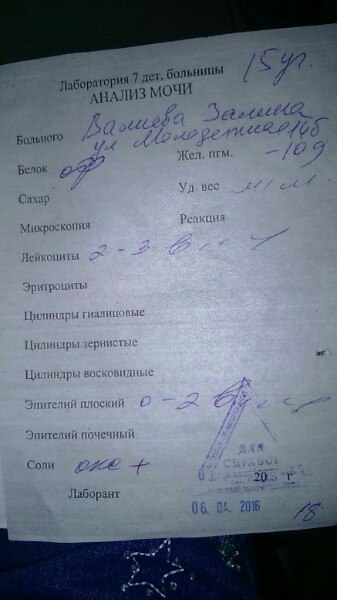 Лаборатория 7 дет. больницы
АНАЛИЗ МОЧИ
Больного Валиева Залина
ул Молодежная 14б
Белок отр Жел. пгм. -109
Сахар Уд. вес м/м
Микроскопия Реакция
Лейкоциты 2-3 в
Эритроциты
Цилиндры гиалиновые
Цилиндры зернистые
Цилиндры восковидные
Эпителий плоский 0-2 в
Эпителий почечный
Соли окс +
ДЛЯ
СПРАВОК
20 г
Лаборант
06. 04. 2016
18